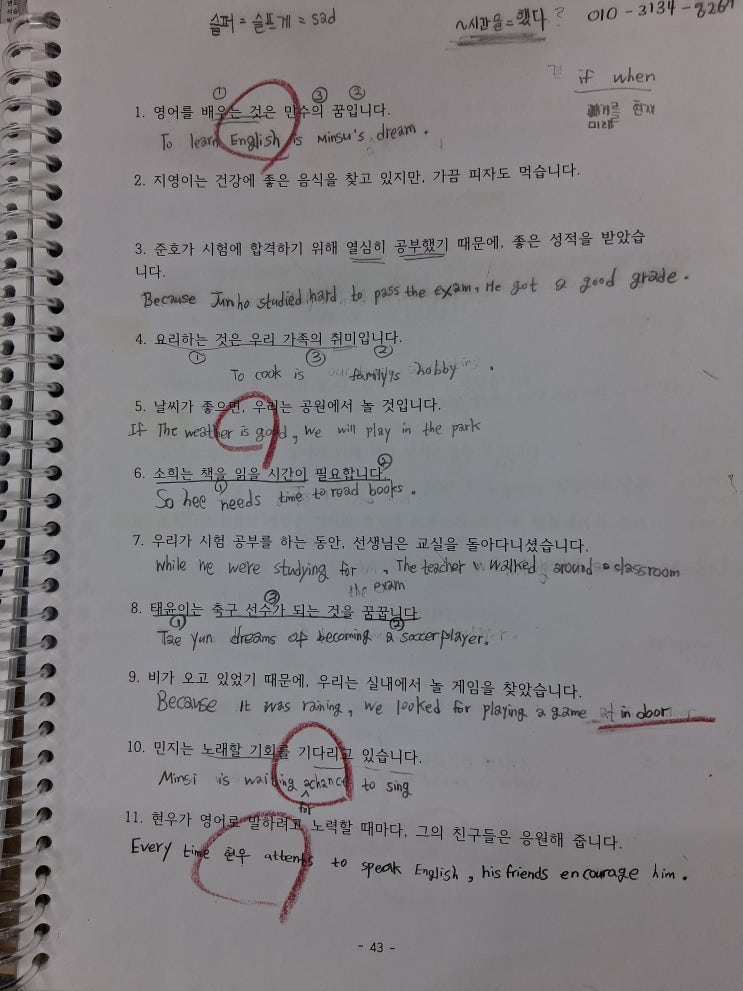 슬퍼 = 슬프게 = sad
~시간을 = 했다? 010-3134-8261
if when
현재
미래
① ③ ②
1. 영어를 배우는 것은 민수의 꿈입니다.
To learn English is Minsu's dream.
2. 지영이는 건강에 좋은 음식을 찾고 있지만, 가끔 피자도 먹습니다.
3. 준호가 시험에 합격하기 위해 열심히 공부했기 때문에, 좋은 성적을 받았습
니다.
Because Junho studied hard to pass the exam, He got a good grade.
4. 요리하는 것은 우리 가족의 취미입니다.
① ③ ②
To cook is familys hobby.
5. 날씨가 좋으면, 우리는 공원에서 놀 것입니다.
If The weather is good, we will play in the park
6. 소희는 책을 읽을 시간이 필요합니다.
① ②
So hee needs time to read books.
7. 우리가 시험 공부를 하는 동안, 선생님은 교실을 돌아다니셨습니다.
While we were studying for the exam, The teacher walked around a classroom
8. 태윤이는 축구 선수가 되는 것을 꿈꿉니다
① ③ ②
Tae yun dreams of becoming a soccer player.
9. 비가 오고 있었기 때문에, 우리는 실내에서 놀 게임을 찾았습니다.
Because It was raining, we looked for playing a game at in door
10. 민지는 노래할 기회를 기다리고 있습니다.
Minsi is waiting for a chance to sing
11. 현우가 영어로 말하려고 노력할 때마다, 그의 친구들은 응원해 줍니다.
Every time 현우 attemts to speak English, his friends encourage him.
- 43 -